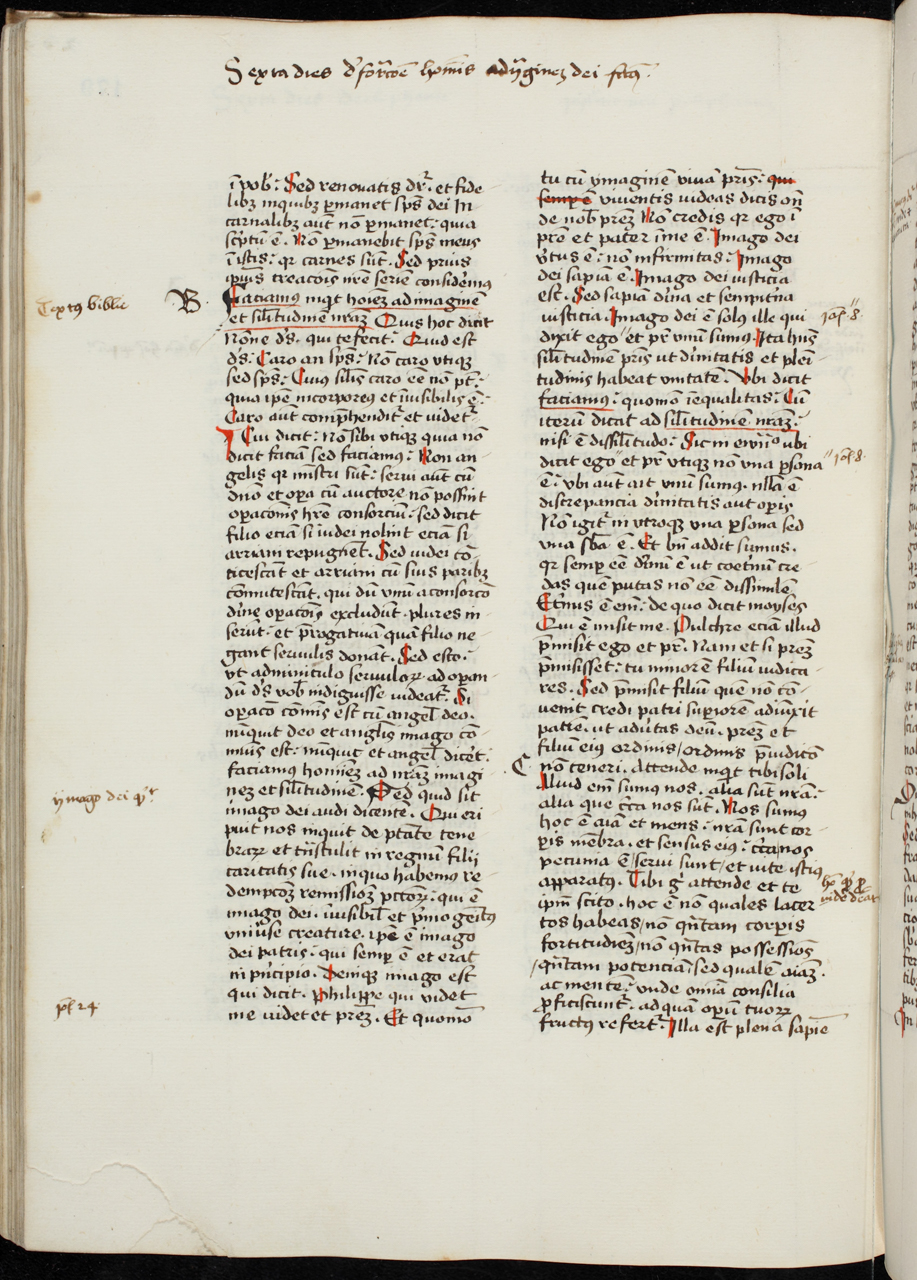 Sexta dies d' forꝛcōe hoīnis ad ymaginēz dei fctꝫ.
ī vob̄. Sed renovatis dr̄. et fide
libꝫ inquibꝫ p̱manet sp̄s dei In
carnalibꝫ aūt nō p̱manet. quia
sc̄ptū ē. Nō p̱manebit sp̄s meus
ī istis. qꝛ carnes sūt. Sed prius
ip̄ius creacōis nr̄e seriē considēmꝰ
Textꝰ biblie
B.
Faciamꝰ inqt hoīez ad imaginē
et sil̄itudinē nr̄az Quis hoc dicit
Nōne d̄s. qui te fecit. Quid est
d̄s. Caro an sp̄s. Nō caro vtiqꝫ
sed sp̄s. Cuiꝰ silis caro eē nō pt̄.
quia ip̄e incorporeꝰ et īuisibilis ē.
Caro aūt comp̱hendit̄ et videt̄
Cui dicit. Nō sibi vtiqꝫ quia nō
dicit faciā sed faciamꝰ. Non an
gelis qꝛ mīstri sūt. serui aūt cū
dnō et op̱a cū auctore nō possūt
op̱acōnis hr̄e consorciū. sed dicit
filio eciā si iudei nolint eciā si
arriani repugnēt. Sed iudei cō-
ticescāt et arriani cū suis paribꝫ
cōmutescāt. qui dū vnū a consorcō
diūne op̱acōis excludūt. plures in
serūt. et p̄rogatiuā quā filio ne-
gant seruulis donāt. Sed esto.
vt adminiculo seruuloꝝ ad op̱an-
dū d̄s vob̄ indiguisse videat̄. Si
op̱acō cōmīs est cū angel̄ deo.
nūquit deo et angl̄is imago cō-
muis est. nūquit et angel̄ dicēt.
faciamus homiēz ad nr̄az imagi
nez et silitudinē. Sed quid sit
ymago dei qͥd
imago dei audi dicentē. Qui eri
puit nos inquit de ptāte tene
braꝝ et tn̄stulit in regnū filij
caritatis sue. in quo habemus re-
dempcōz remissiōz pctōꝝ. qui ē
imago dei. īuisibil̄ et p̱mogenitꝰ
vniuse creature. ip̄e ē imago
dei patris. qui semp̱ ē et erat
in pn̄cipio. Deniqꝫ imago est
qui dicit. Philippe qui videt
p̱l 24
me videt et prēz. Et quomō
tu cū ymaginē viuā pris. qui
semp̱ ē viuentis videas dicis on̄
de nob̄ prez Nō credis qꝛ ego ī
pr̄e et pater ī me ē. Imago dei
v̄tus ē. nō infirmitas. Imago
dei sapiā ē. Imago dei iusticia
est. Sed sapiā diūna et sempit̄na
iusticia. Imago dei ē solꝰ ille qui
joh̄ 8.
dixit ego et pr̄ vnū sumꝰ. Ita hn̄s
sil̄itudinē pris ut diūnitatis et plei-
tudinis habeat vnitatē. Vbi dicit
faciamꝰ. quomō īequalitas. Cū
iterū dicit ad sil̄itudinē nr̄az.
nisi ē dissil̄itudo. Sic in ewn̄o ubi
dicit ego et pr̄ vtiqꝫ nō vna p̱sona
joh̄ 8.
ē. vbi aūt ait vnū sumꝰ. nll̄a ē
discrepancia diūnitatis aut op̱is
Nō igit̄ in vtroqꝫ vna p̱sona sed
vna sb̄a ē. Et bn̄ addit sumus.
qꝛ semp̱ eē diūnū ē ut coet̄nū cre
das quē putas nō eē dissimilē
Et̄nus ē em̄. de quo dicit moyses
Qui ē misit me. Pulchre eciā illud
p̄misit ego et pr̄. Nam et si prēz
p̄misisset. tu minorē filiū iudica-
res. Sed p̄misit filiū quē nō cō-
uenit credi patri sup̱iorē adiūxit
patrē. ut adūtas deū. prēz et
filiū eiꝰ ordinis / ordinis p̄iudicō
C
nō teneri. Attende inqt tibi soli
Aliud em̄ sumꝰ nos. alia sūt nr̄a.
alia que circa nos sūt. Nos sumꝰ
hoc ē aiā et mens. nr̄a sunt cor-
p̱is mēbra. et sensus eiꝰ. circa nos
pecunia ē / serui sunt / et vite istiꝰ
apparatꝰ. Tibi gͦ attende et te
ip̄m scito. hoc ē nō quales lacer
tos habeas / nō qn̄tam corp̱is
fortitudiēz / nō qn̄tas possessiōs
/ qn̄tam potenciā. sed qualē aiāz
ac mentē. vnde omīa consilia
p̱ficiscunt̄. ad quā op̱ū tuoꝝ
fructꝰ refert̄. Illa est plena sapiē